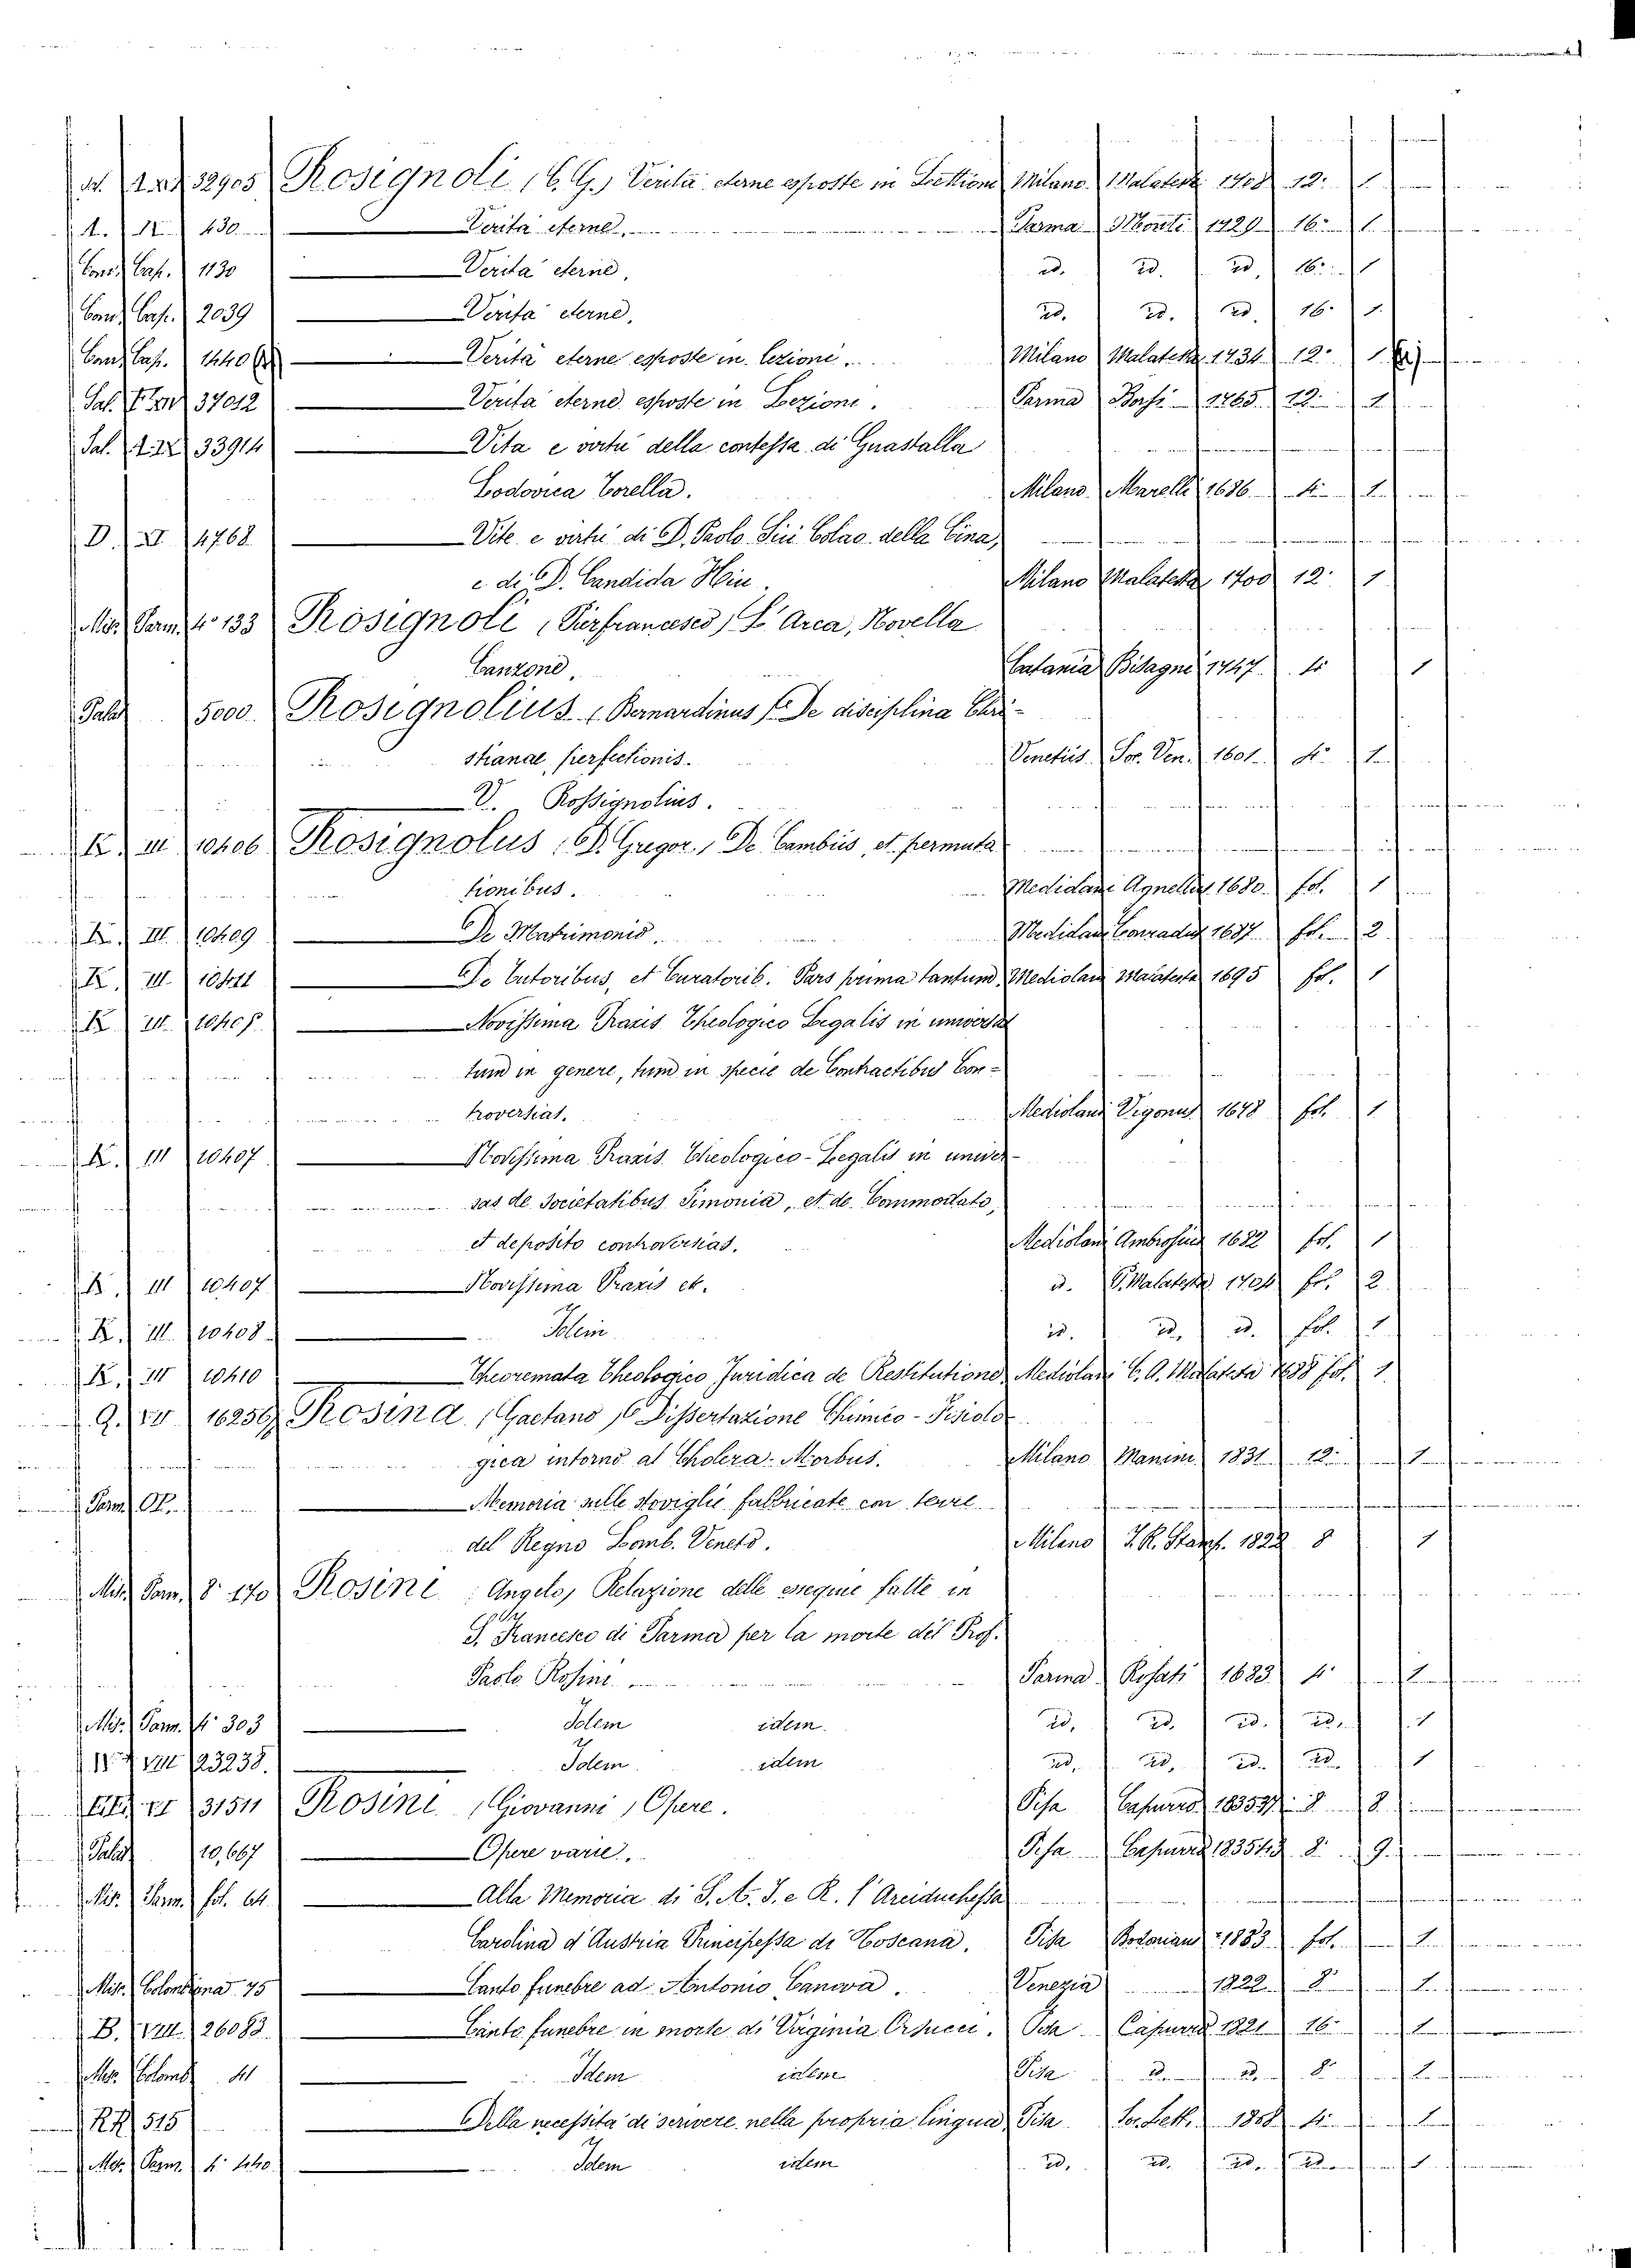 32905 Rosignoli (C. G.) Verità eterne esposte in Lettione Milano Malatesta 12. 1
A. 430 Verità eterne, Parma Monti 1729 16. 1
Cons. Cap. 1130 Verità eterne, id. id. id. 16. 1
Cons. Cap. 2039 Verità eterne, id. id. id. 16. 1
Cons. Cap. 1440 Verità eterne esposte in lezione. Milano Malatesta 1734 12. 1
Sal. 37012 Verità eterne esposte in Lezione. Parma 1765 12. 1
Sal. 33914 Vita e virtù della contessa di Guastalla
Lodovica Torella. Milano Marelli 1686 4. 1
D. XI 4768 Vite e virtù di D. Paolo Siu Colao della Cina,
e di D. Candida Hiu. Milano Malatesta 1700 12. 1
Mis. Parm. 4º 133 Rosignoli (Pierfrancesco) L'Arca, Novella
Canzone. Catania Bisagni 1747 4º 1
Palat 5000 Rosignolius (Bernardinus) De disciplina Chri-
stianae perfectionis. Venetiis Soc. Ven. 1601 4º 1
V. Rossignolius.
K. III 10406 Rosignolus (D. Gregor.) De Cambiis, et permuta
tionibus. Mediolani Agnellus 1680 fol. 1
K. III 10409 De Matrimonio. fol. 2
K. III 10411 De Tutoribus, et Curatorib. Pars prima tantum, Mediolani Malatesta 1695 fol. 1
K. III Novissima Praxis Theologico Legalis in universas
tum in genere, tum in specie de Contractibus Con-
troversias. Mediolani Vigonus 1678 fol. 1
K. III 10407 Novissima Praxis Theologico-Legalis in univer-
sas de Societatibus Simonia, et de Commodato,
et deposito controversias. Mediolani Ambrosius 1682 fol. 1
K. III 10407 Novissima Praxis etc. id. Malatesta 1704 fol. 2
K. III 10408 Idem id. id. id. fol. 1
K. III 10410 Theoremata Theologico Juridica de Restitutione Mediolani C. A. Malatesta 1688 fol. 1
Q. 16259 Rosina (Gaetano) Dissertazione Chimico-Fisiolo
gica intorno al Cholera-Morbus. Milano Manini 1831 12. 1
Parm. Memoria sulle stoviglie fabbricate con terre
del Regno Lomb. Veneto. Milano I. R. Stamp. 1822 8 1
Mis. Parm. 8º 170 Rosini (Angelo) Relazione delle esequie fatte in
S. Francesco di Parma per la morte del Prof.
Paolo Rosini. Parma Rosati 1683 4º 1
Mis. Parm. 4º 303 Idem idem. id. id. id. id. 1
VIII 23238. Idem idem id. id. id. id. 1
31511 Rosini (Giovanni) Opere. Pisa Capurro 8 8
Palat 10,667 Opere varie. Pisa Capurro 8. 9.
Mis. Parm. fol. Alla Memoria di S. A. I. e R. l'Arciduchessa
Carolina d'Austria Principessa di Toscana. Pisa 1833 fol. 1
Mis. Colombina 75 Canto funebre ad Antonio Canova. Venezia 1822 8º 1
B. VIII. 26083 Canto funebre in morte di Virginia Orsucci. Pisa Capurro 1821 16 1
Mis. Colomb. 41 Idem idem Pisa id. id. 8º 1
515 Della necessità di scrivere nella propria lingua, Pisa Soc. Lett. 1808 4º 1
Mis. Parm. 4º 440 Idem idem id. id. id. id. 1